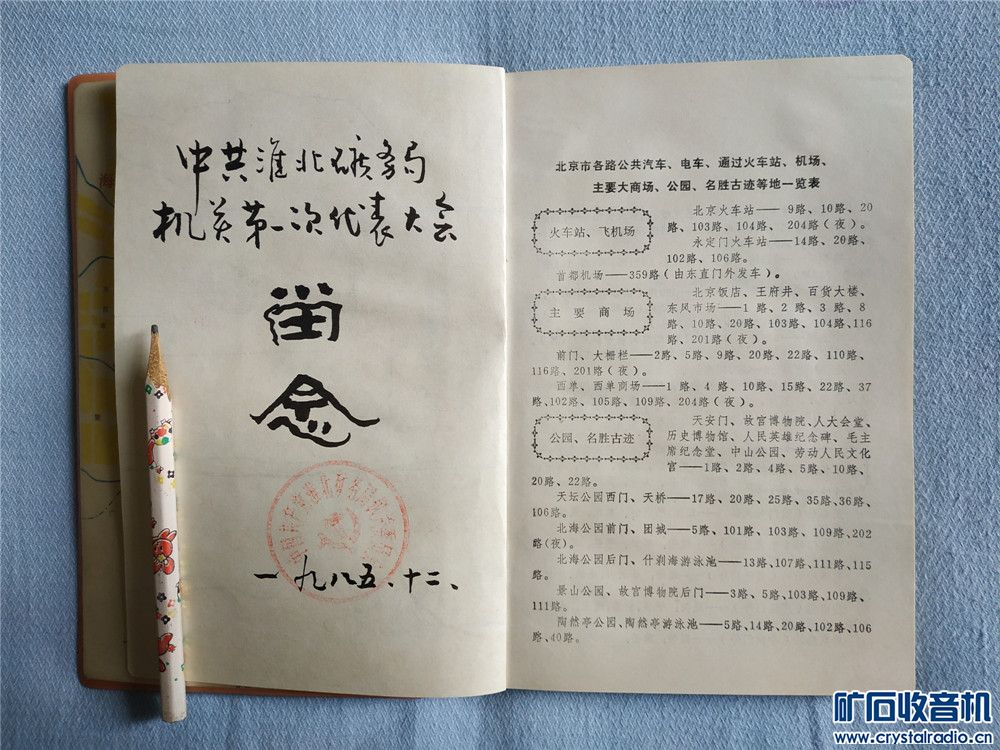 中共淮北矿务局
机关第一次代表大会
留
念
一九八五.十二、
北京市各路公共汽车、电车、通过火车站、机场、
主要大商场、公园、名胜古迹等地一览表
火车站、飞机场
北京火车站——9路、10路、20
路、103路、104路、 204路(夜)。
永定门火车站——14路、20路、
102路、106路。
首都机场——359路(由东直门外发车)。
主 要 商 场
北京饭店、王府井、百货大楼、
东风市场——1 路、2 路、3 路、8
路、10路、20路、103路、104路、116
路、201路(夜)。
前门、大栅栏——2路、5路、9路、20路、22路、110路、
116路、201路(夜)。
西单、西单商场——1 路、4 路、10路、15路、22路、37
路、102路、105路、109路、204路(夜)。
公园、名胜古迹
天安门、故宫博物院、人大会堂、
历史博物馆、人民英雄纪念碑、毛主
席纪念堂、中山公园、劳动人民文化
宫——1路、2路、4路、5路、10路、
20路、22路。
天坛公园西门、天桥——17路、20路、25路、35路、36路、
106路。
北海公园前门、团城——5路、101路、103路、109路、202
路(夜)。
北海公园后门、什刹海游泳池——13路、107路、111路、115
路。
景山公园、故宫博物院后门——3路、5路、103路、109路、
111路。
陶然亭公园、陶然亭游泳池——5路、14路、20路、102路、106
路、40路。
矿石收音机
www.crystalradio.cn